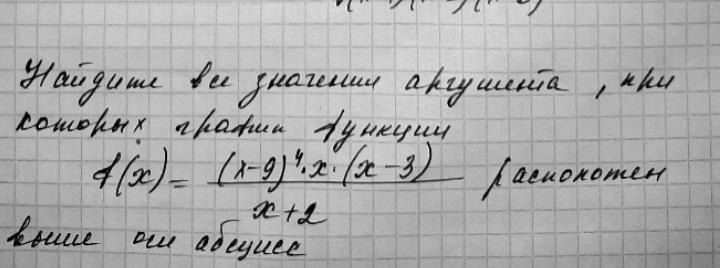 Найдите все значения аргумента, при
которых график функции
f(x) = (x-9)⁴·x·(x-3) / x+2 расположен
выше оси абсцисс